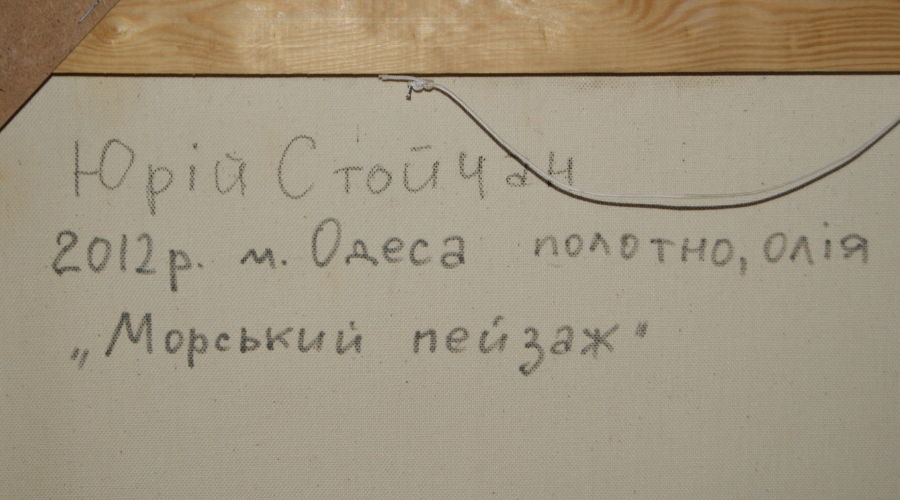 Юрій Стойчан
2012р. м. Одеса полотно, олія
„Морський пейзаж"